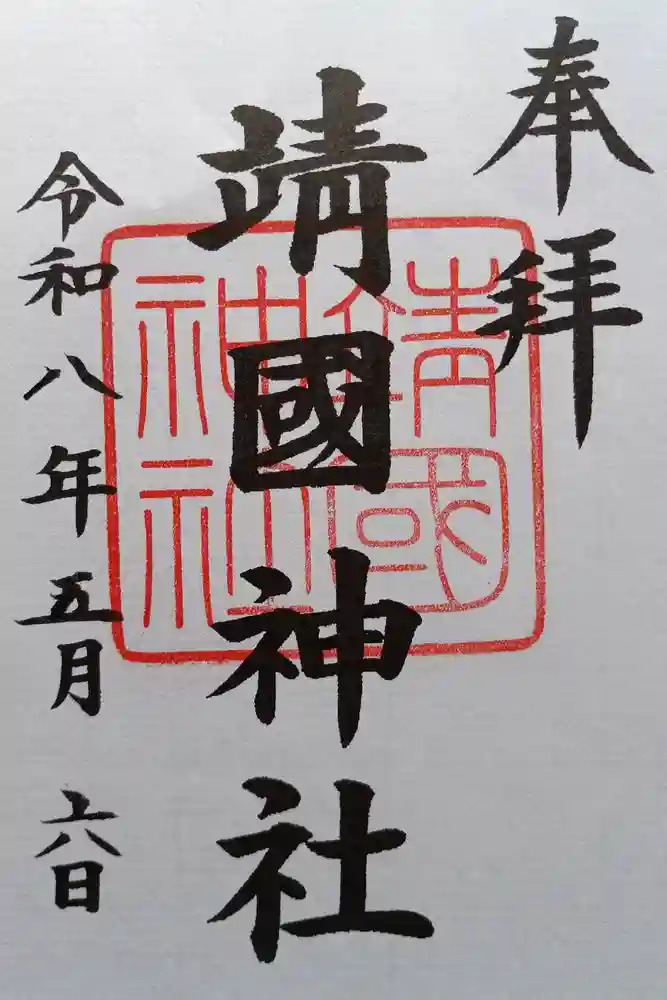 奉拝
靖國神社
靖國神社
令和八年五月六日